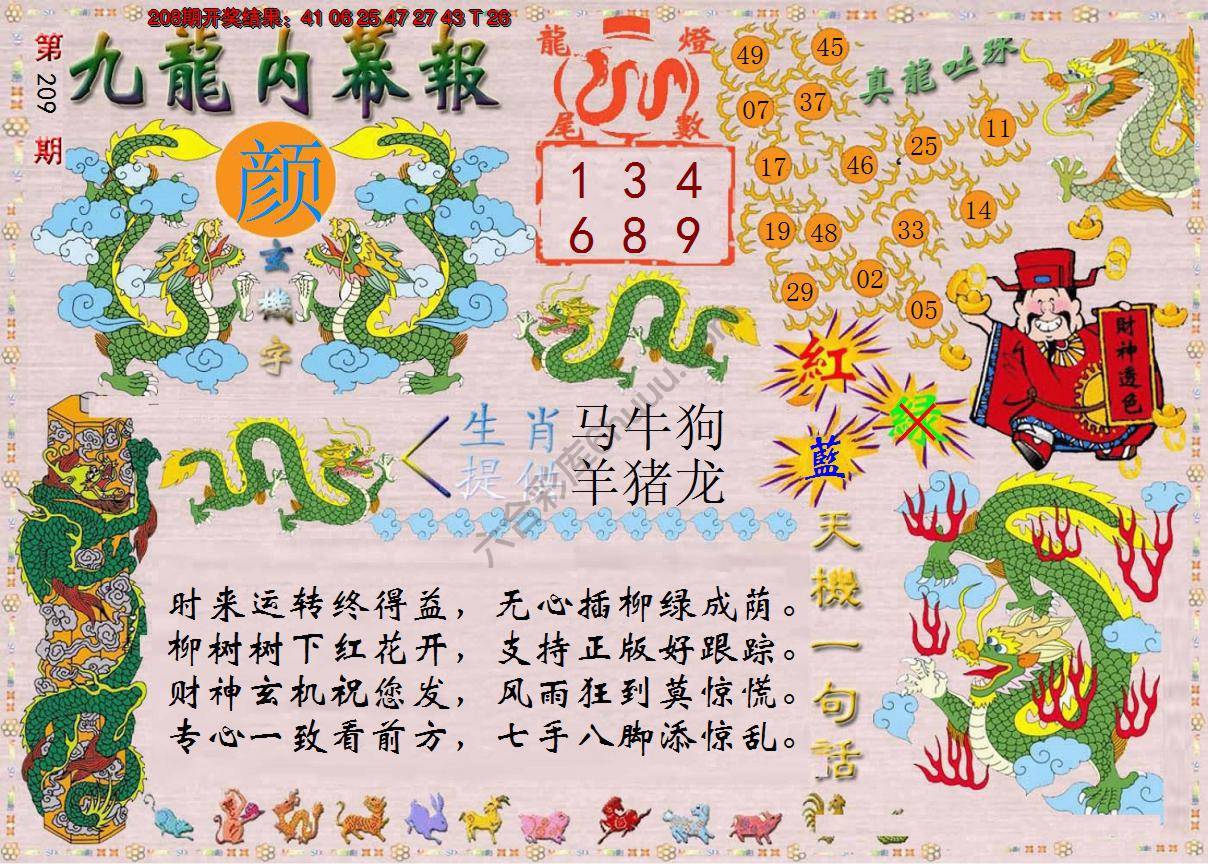 208期开奖结果：41 06 25 47 27 43 T 26
第
209
期
九龍内幕報
颜
玄
機
字
龍 燈
尾 數
1 3 4
6 8 9
真龍吐珠
49
45
07
37
11
25
17
46
14
19
48
33
02
29
05
財神透色
紅
绿
藍
生肖 马牛狗
提供 羊猪龙
天機一句話
时来运转终得益，无心插柳绿成荫。
柳树树下红花开，支持正版好跟踪。
财神玄机祝您发，风雨狂到莫惊慌。
专心一致看前方，七手八脚添惊乱。